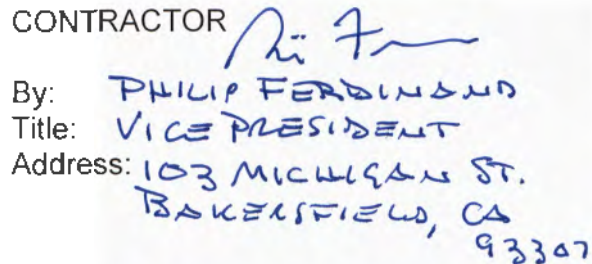 CONTRACTOR
By: PHILIP FERDINAND
Title: VICE PRESIDENT
Address: 103 MICHIGAN ST.
BAKERSFIELD, CA
93307